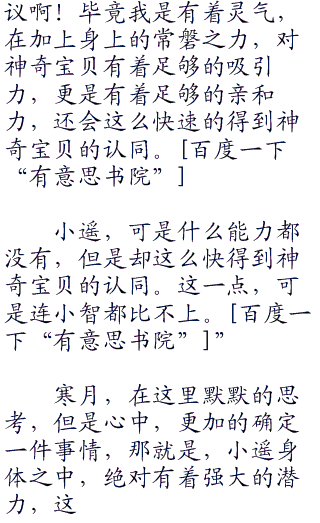 议啊！毕竟我是有着灵气，
在加上身上的常磐之力，对
神奇宝贝有着足够的吸引
力，更是有着足够的亲和
力，还会这么快速的得到神
奇宝贝的认同。[百度一下
“有意思书院”]
小遥，可是什么能力都
没有，但是却这么快得到神
奇宝贝的认同。这一点，可
是连小智都比不上。[百度一
下“有意思书院”]”
寒月，在这里默默的思
考，但是心中，更加的确定
一件事情，那就是，小遥身
体之中，绝对有着强大的潜
力，这